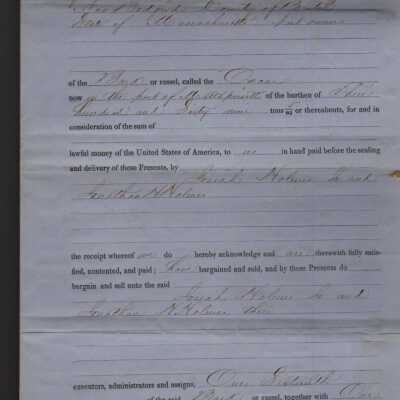 New Bedford County of Bristol
State of Massachusetts part owners
of the Bark or vessel, called the Oscar
now in the port of Mattapoisett of the burthen of Three
hundred and Sixty nine tons /95 or thereabouts, for and in
consideration of the sum of
lawful money of the United States of America, to us in hand paid before the sealing
and delivery of these Presents, by Josiah Holmes Jr and
Jonathan H Holmes
the receipt whereof we do hereby acknowledge and are therewith fully satis-
fied, contented, and paid; have bargained and sold, and by these Presents do
bargain and sell unto the said
Josiah Holmes Jr and
Jonathan H Holmes their
executors, administrators and assigns, One
of the said Bark or vessel, together with One